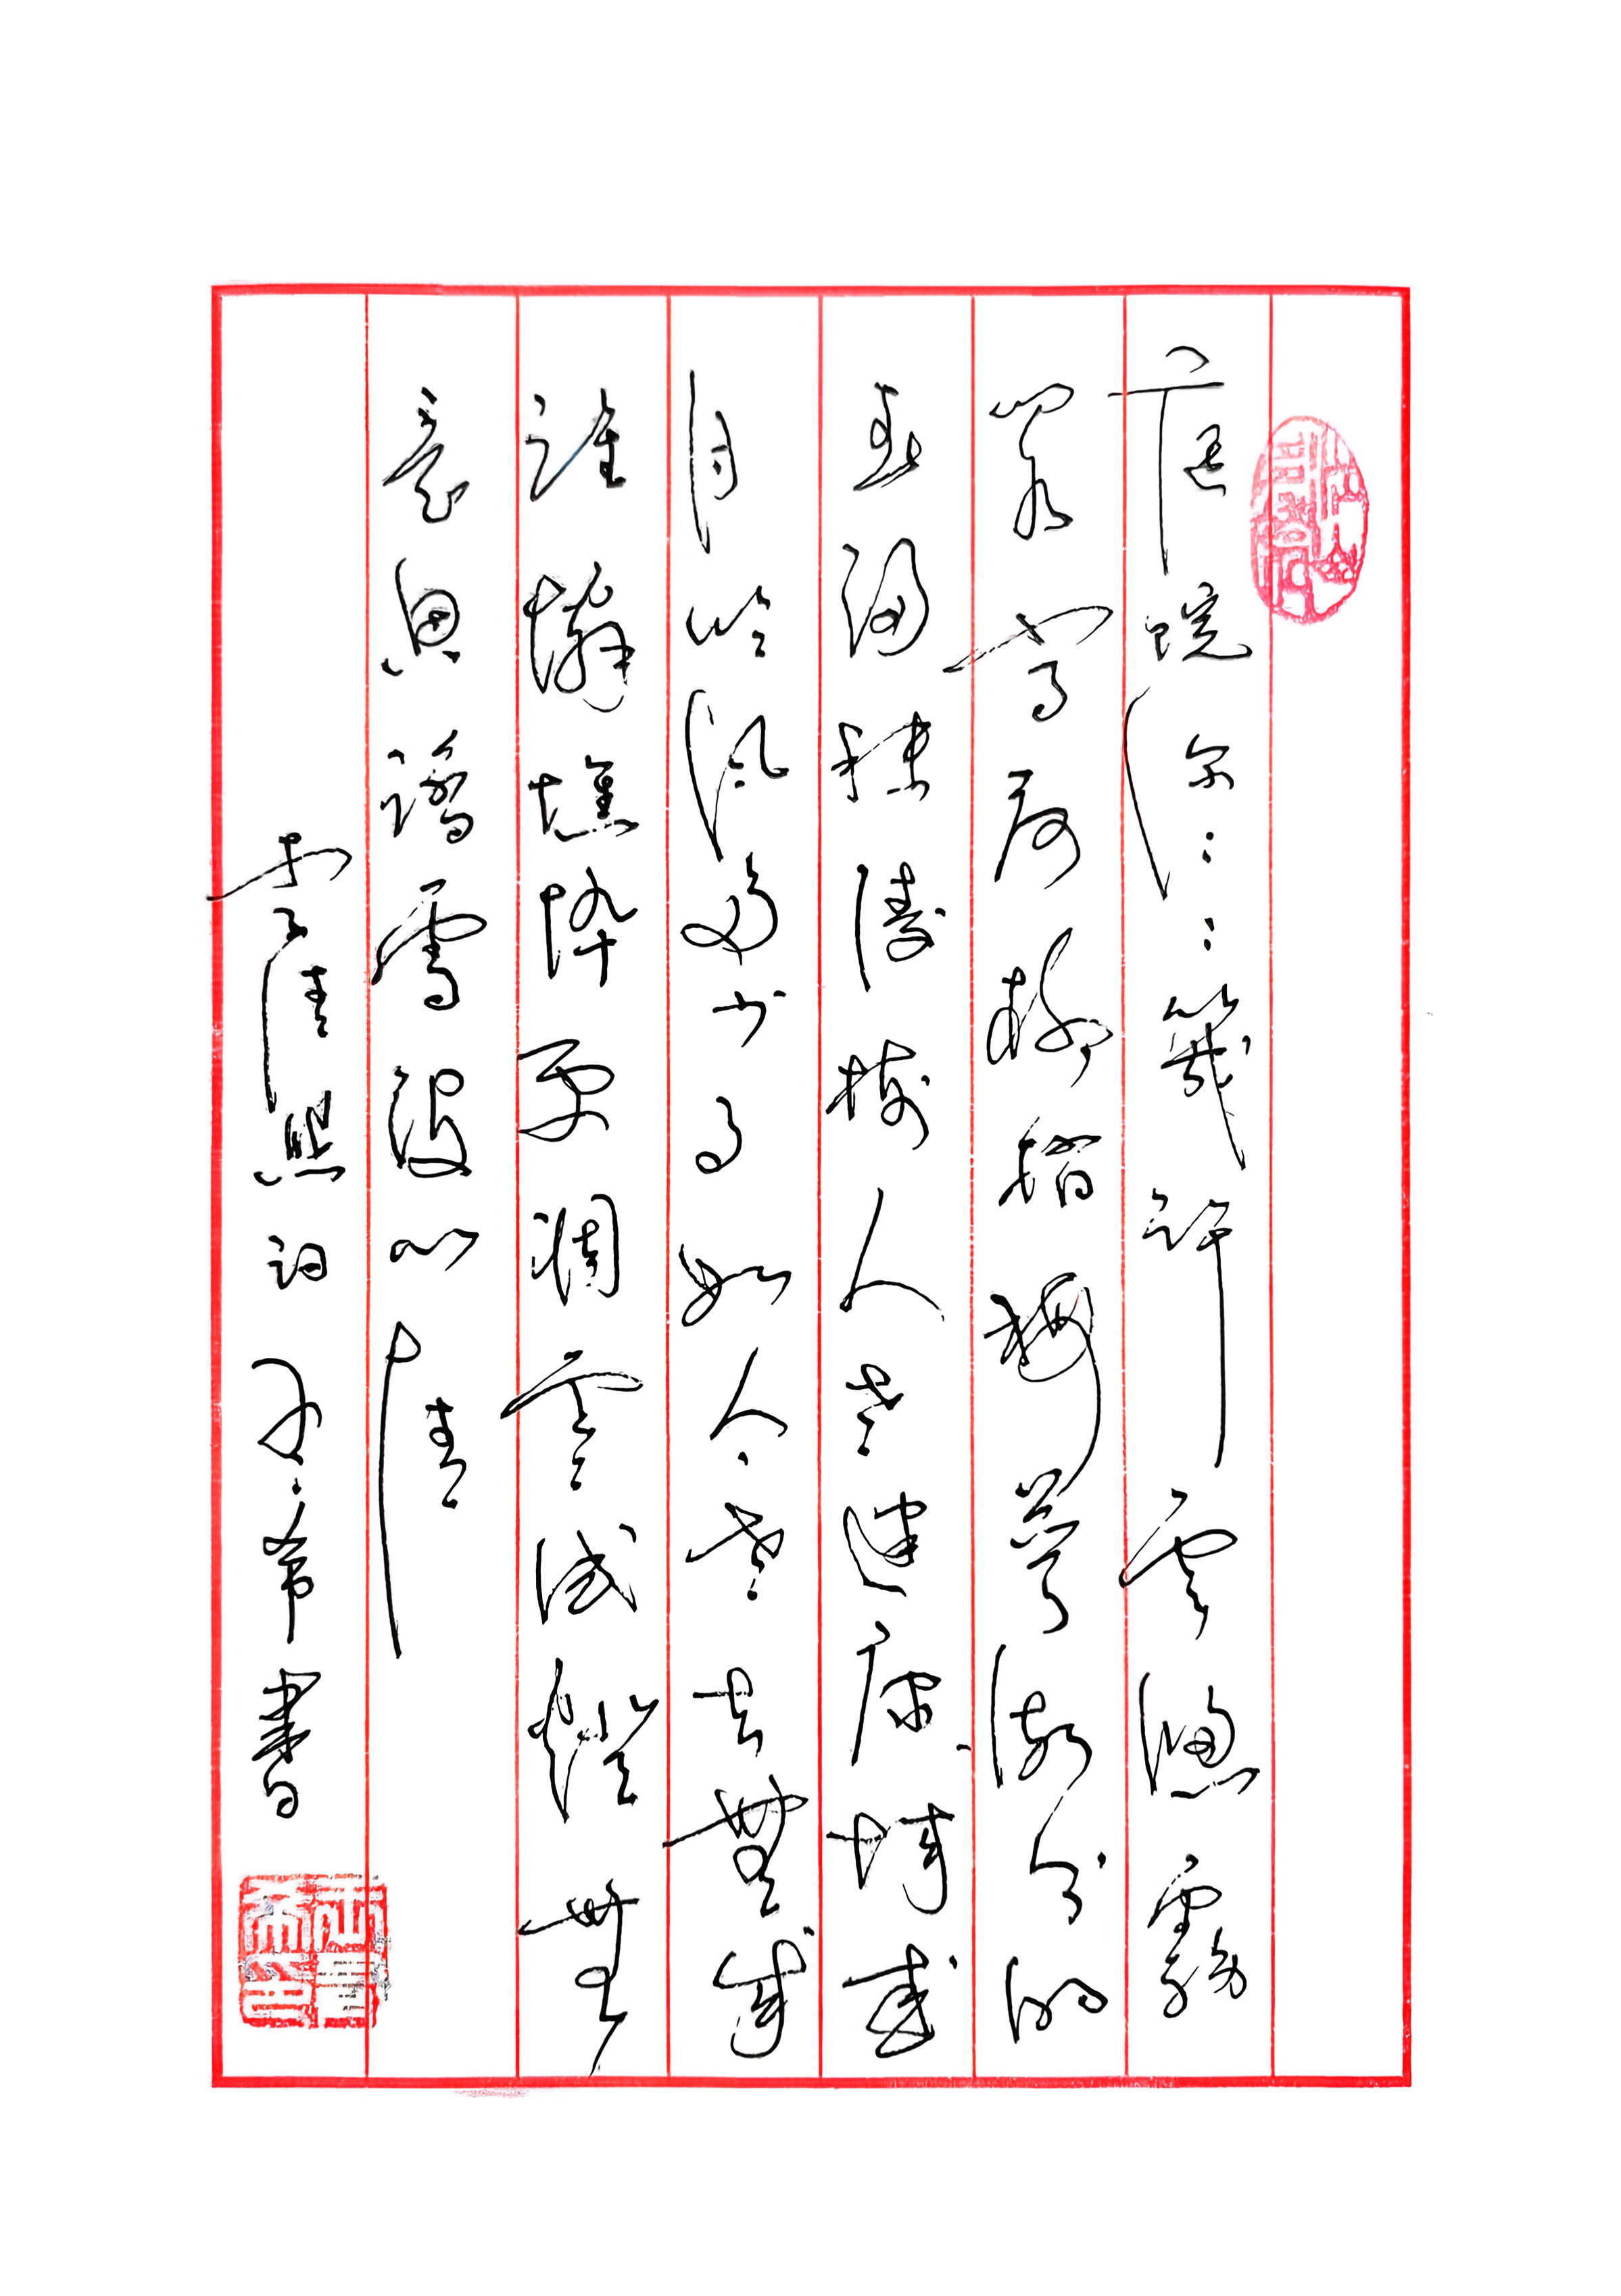 庭院深〻〻幾許雲窗霧
閣常扃柳梢梅萼漸分明
春歸秣陵樹人老建康城感
月吟風多少事如今老去無成
誰憐憔悴更凋零試燈無
意思踏雪沒心情
李清照詞 希書